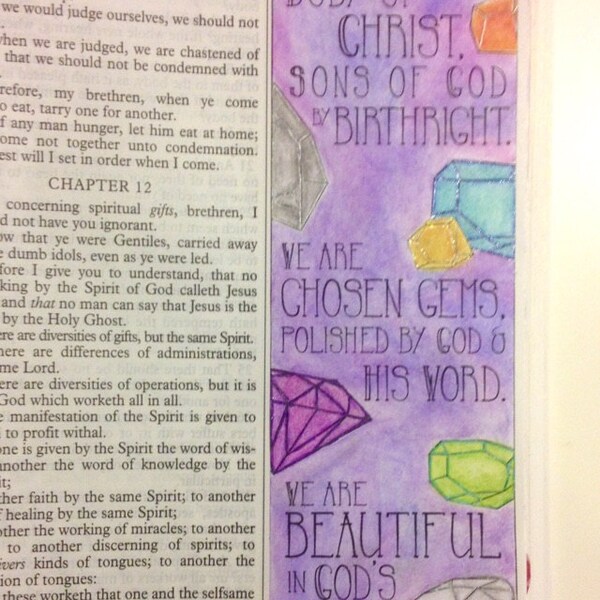 we would judge ourselves, we should not
when we are judged, we are chastened of
that we should not be condemned with
my brethren, when ye come
eat, tarry one for another.
any man hunger, let him eat at home;
come not together unto condemnation.
will I set in order when I come.
CHAPTER 12
concerning spiritual gifts, brethren, I
not have you ignorant.
that ye were Gentiles, carried away
dumb idols, even as ye were led.
I give you to understand, that no
by the Spirit of God calleth Jesus
and that no man can say that Jesus is the
by the Holy Ghost.
are diversities of gifts, but the same Spirit.
there are differences of administrations,
Lord.
are diversities of operations, but it is
God which worketh all in all.
manifestation of the Spirit is given to
to profit withal.
one is given by the Spirit the word of wis-
another the word of knowledge by the
faith by the same Spirit; to another
of healing by the same Spirit;
the working of miracles; to another
to another discerning of spirits; to
kinds of tongues; to another the
of tongues:
these worketh that one and the selfsame
BODY OF
CHRIST,
SONS OF GOD
BY BIRTHRIGHT.
WE ARE
CHOSEN GEMS,
POLISHED BY GOD &
HIS WORD.
WE ARE
BEAUTIFUL
IN GOD'S